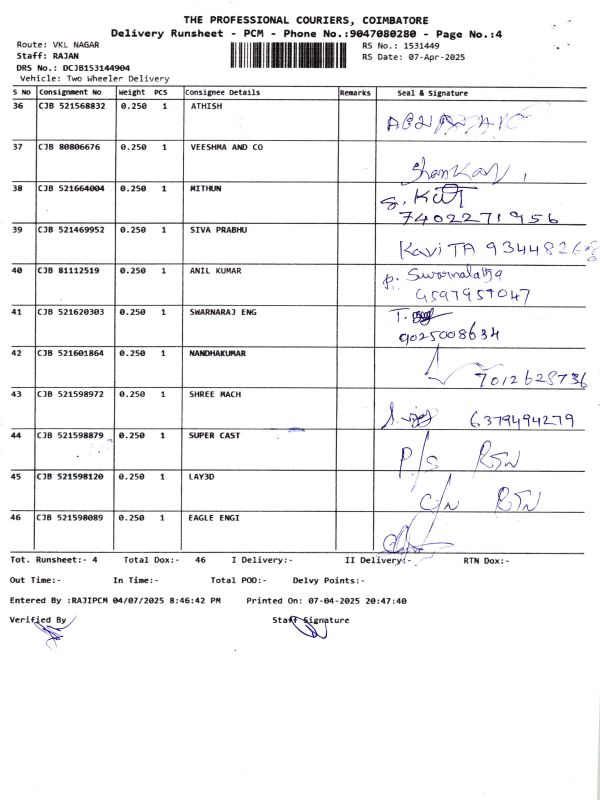 THE PROFESSIONAL COURIERS, COIMBATORE
Delivery Runsheet - PCM - Phone No.:9047080280 - Page No.:4
Route: VKL NAGAR RS No.: 1531449
Staff: RAJAN RS Date: 07-Apr-2025
DRS No.: DCJB153144904
Vehicle: Two Wheeler Delivery
S No Consignment No Weight PCS Consignee Details Remarks Seal & Signature
36 CJB 521568832 0.250 1 ATHISH
37 CJB 80806676 0.250 1 VEESHMA AND CO
Shankar
38 CJB 521664004 0.250 1 MITHUN
7402271956
39 CJB 521469952 0.250 1 SIVA PRABHU
KaviTA 93448268
40 CJB 81112519 0.250 1 ANIL KUMAR P. Swarnalatha
9597959047
41 CJB 521620303 0.250 1 SWARNARAJ ENG T.
9025008634
42 CJB 521601864 0.250 1 NANDHAKUMAR
7012628736
43 CJB 521598972 0.250 1 SHREE MACH
6379494279
44 CJB 521598879 0.250 1 SUPER CAST
P/S RTN
45 CJB 521598120 0.250 1 LAY3D
C/N RTN
46 CJB 521598089 0.250 1 EAGLE ENGI
Tot. Runsheet:- 4 Total Dox:- 46 I Delivery:- II Delivery:- RTN Dox:-
Out Time:- In Time:- Total POD:- Delvy Points:-
Entered By :RAJIPCM 04/07/2025 8:46:42 PM Printed On: 07-04-2025 20:47:40
Verified By Staff Signature